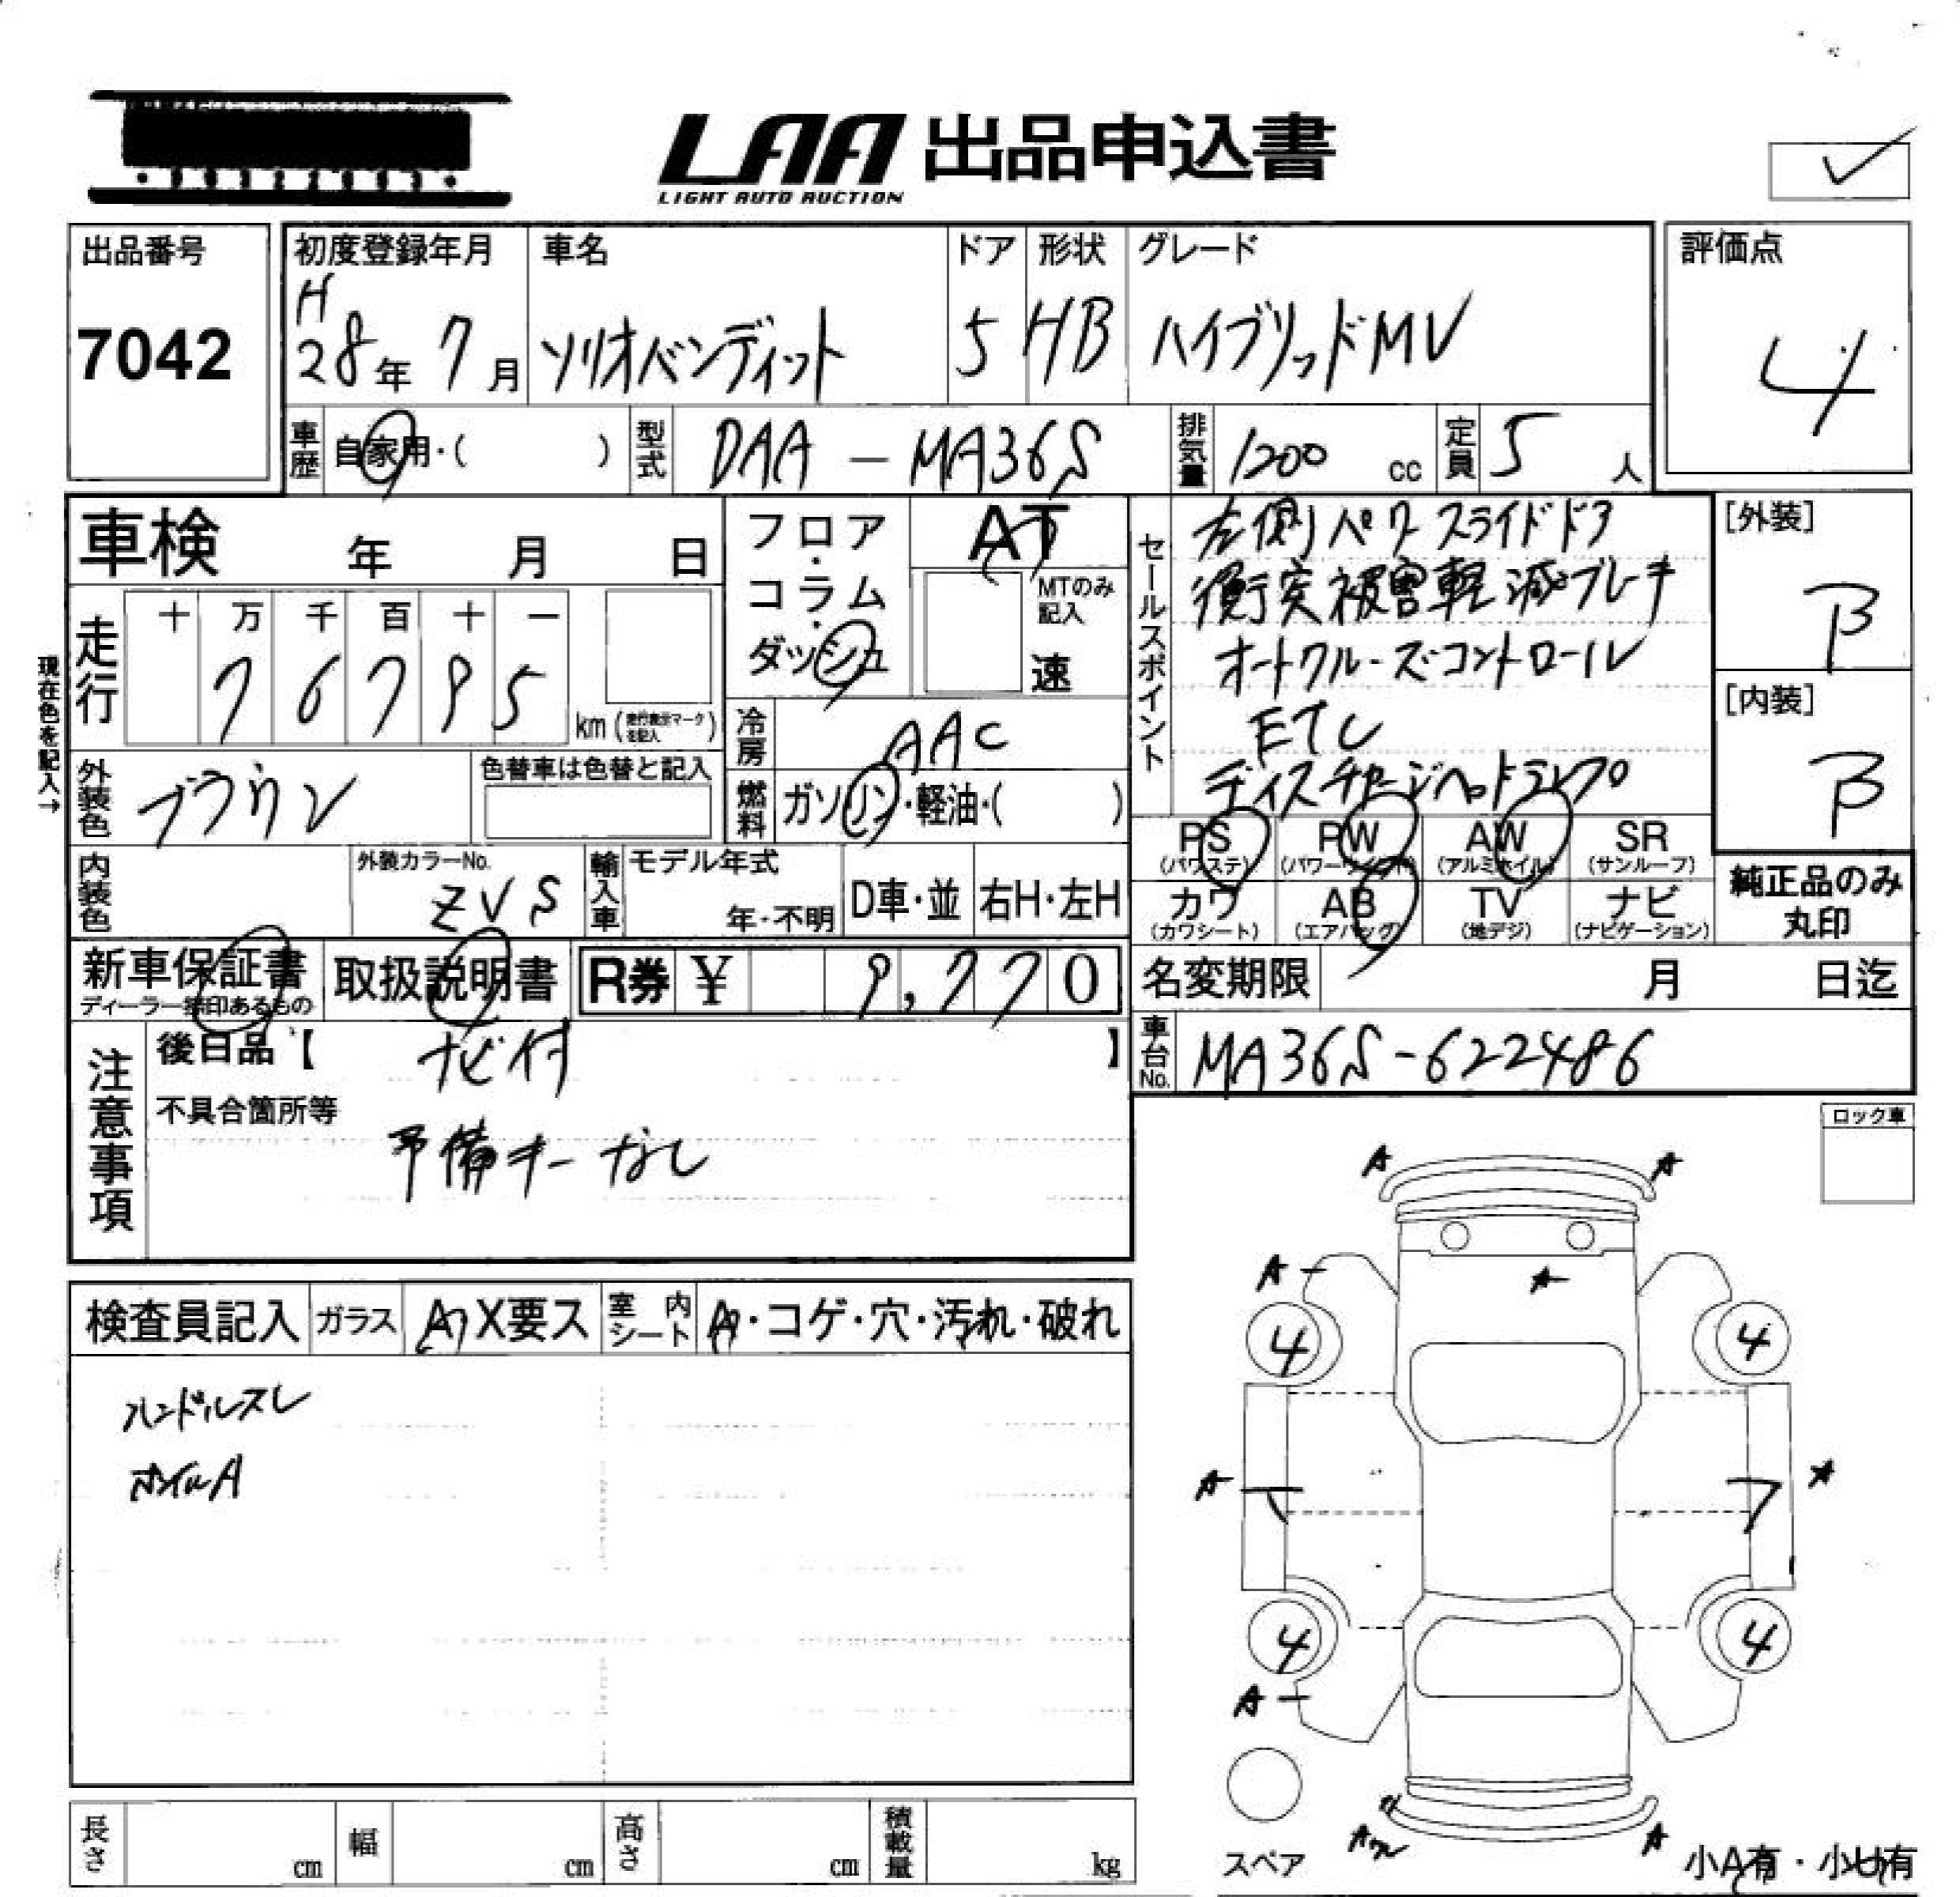 LAA 出品申込書
LIGHT AUTO AUCTION
出品番号
7042
初度登録年月
H
28年 7月
車名
ソリオバンディット
ドア
5
形状
HB
グレード
ハイブリッドMV
評価点
4
車歴 自家用・( )
型式 DAA-MA36S
排気量 1200 cc
定員 5 人
車検 年 月 日
走行
十 万 千 百 十 一
7 6 7 9 5
km (走行表示マークを記入)
現在色を記入→
外装色 ブラウン
色替車は色替と記入
内装色
外装カラーNo.
ZVS
フロア・コラム・ダッシュ
AT
MTのみ記入
速
冷房 AAC
燃料 ガソリン・軽油・( )
輸入車 モデル年式
年・不明
D車・並
右H・左H
セールスポイント
左側パワースライドドア
衝突被害軽減ブレーキ
オートクルーズコントロール
ETC
ディスチャージヘッドランプ
[外装]
B
[内装]
B
PS (パワステ)
PW (パワーウィンドウ)
AW (アルミホイル)
SR (サンルーフ)
カワ (カワシート)
AB (エアバッグ)
TV (地デジ)
ナビ (ナビゲーション)
純正品のみ
丸印
新車保証書
ディーラー捺印あるもの
取扱説明書
R券 ¥ 9,770
名変期限 月 日迄
車台No. MA36S-622486
注意事項
後日品【 】
ナビ付
不具合箇所等
予備キーなし
ロック車
検査員記入
ガラス
A・X要ス
室内シート
A・コゲ・穴・汚れ・破れ
ハンドルスレ
ホイルA
A A
A A
4 4
A A
4 4
A
A
スペア
小A有・小U有
長さ cm
幅 cm
高さ cm
積載量 kg